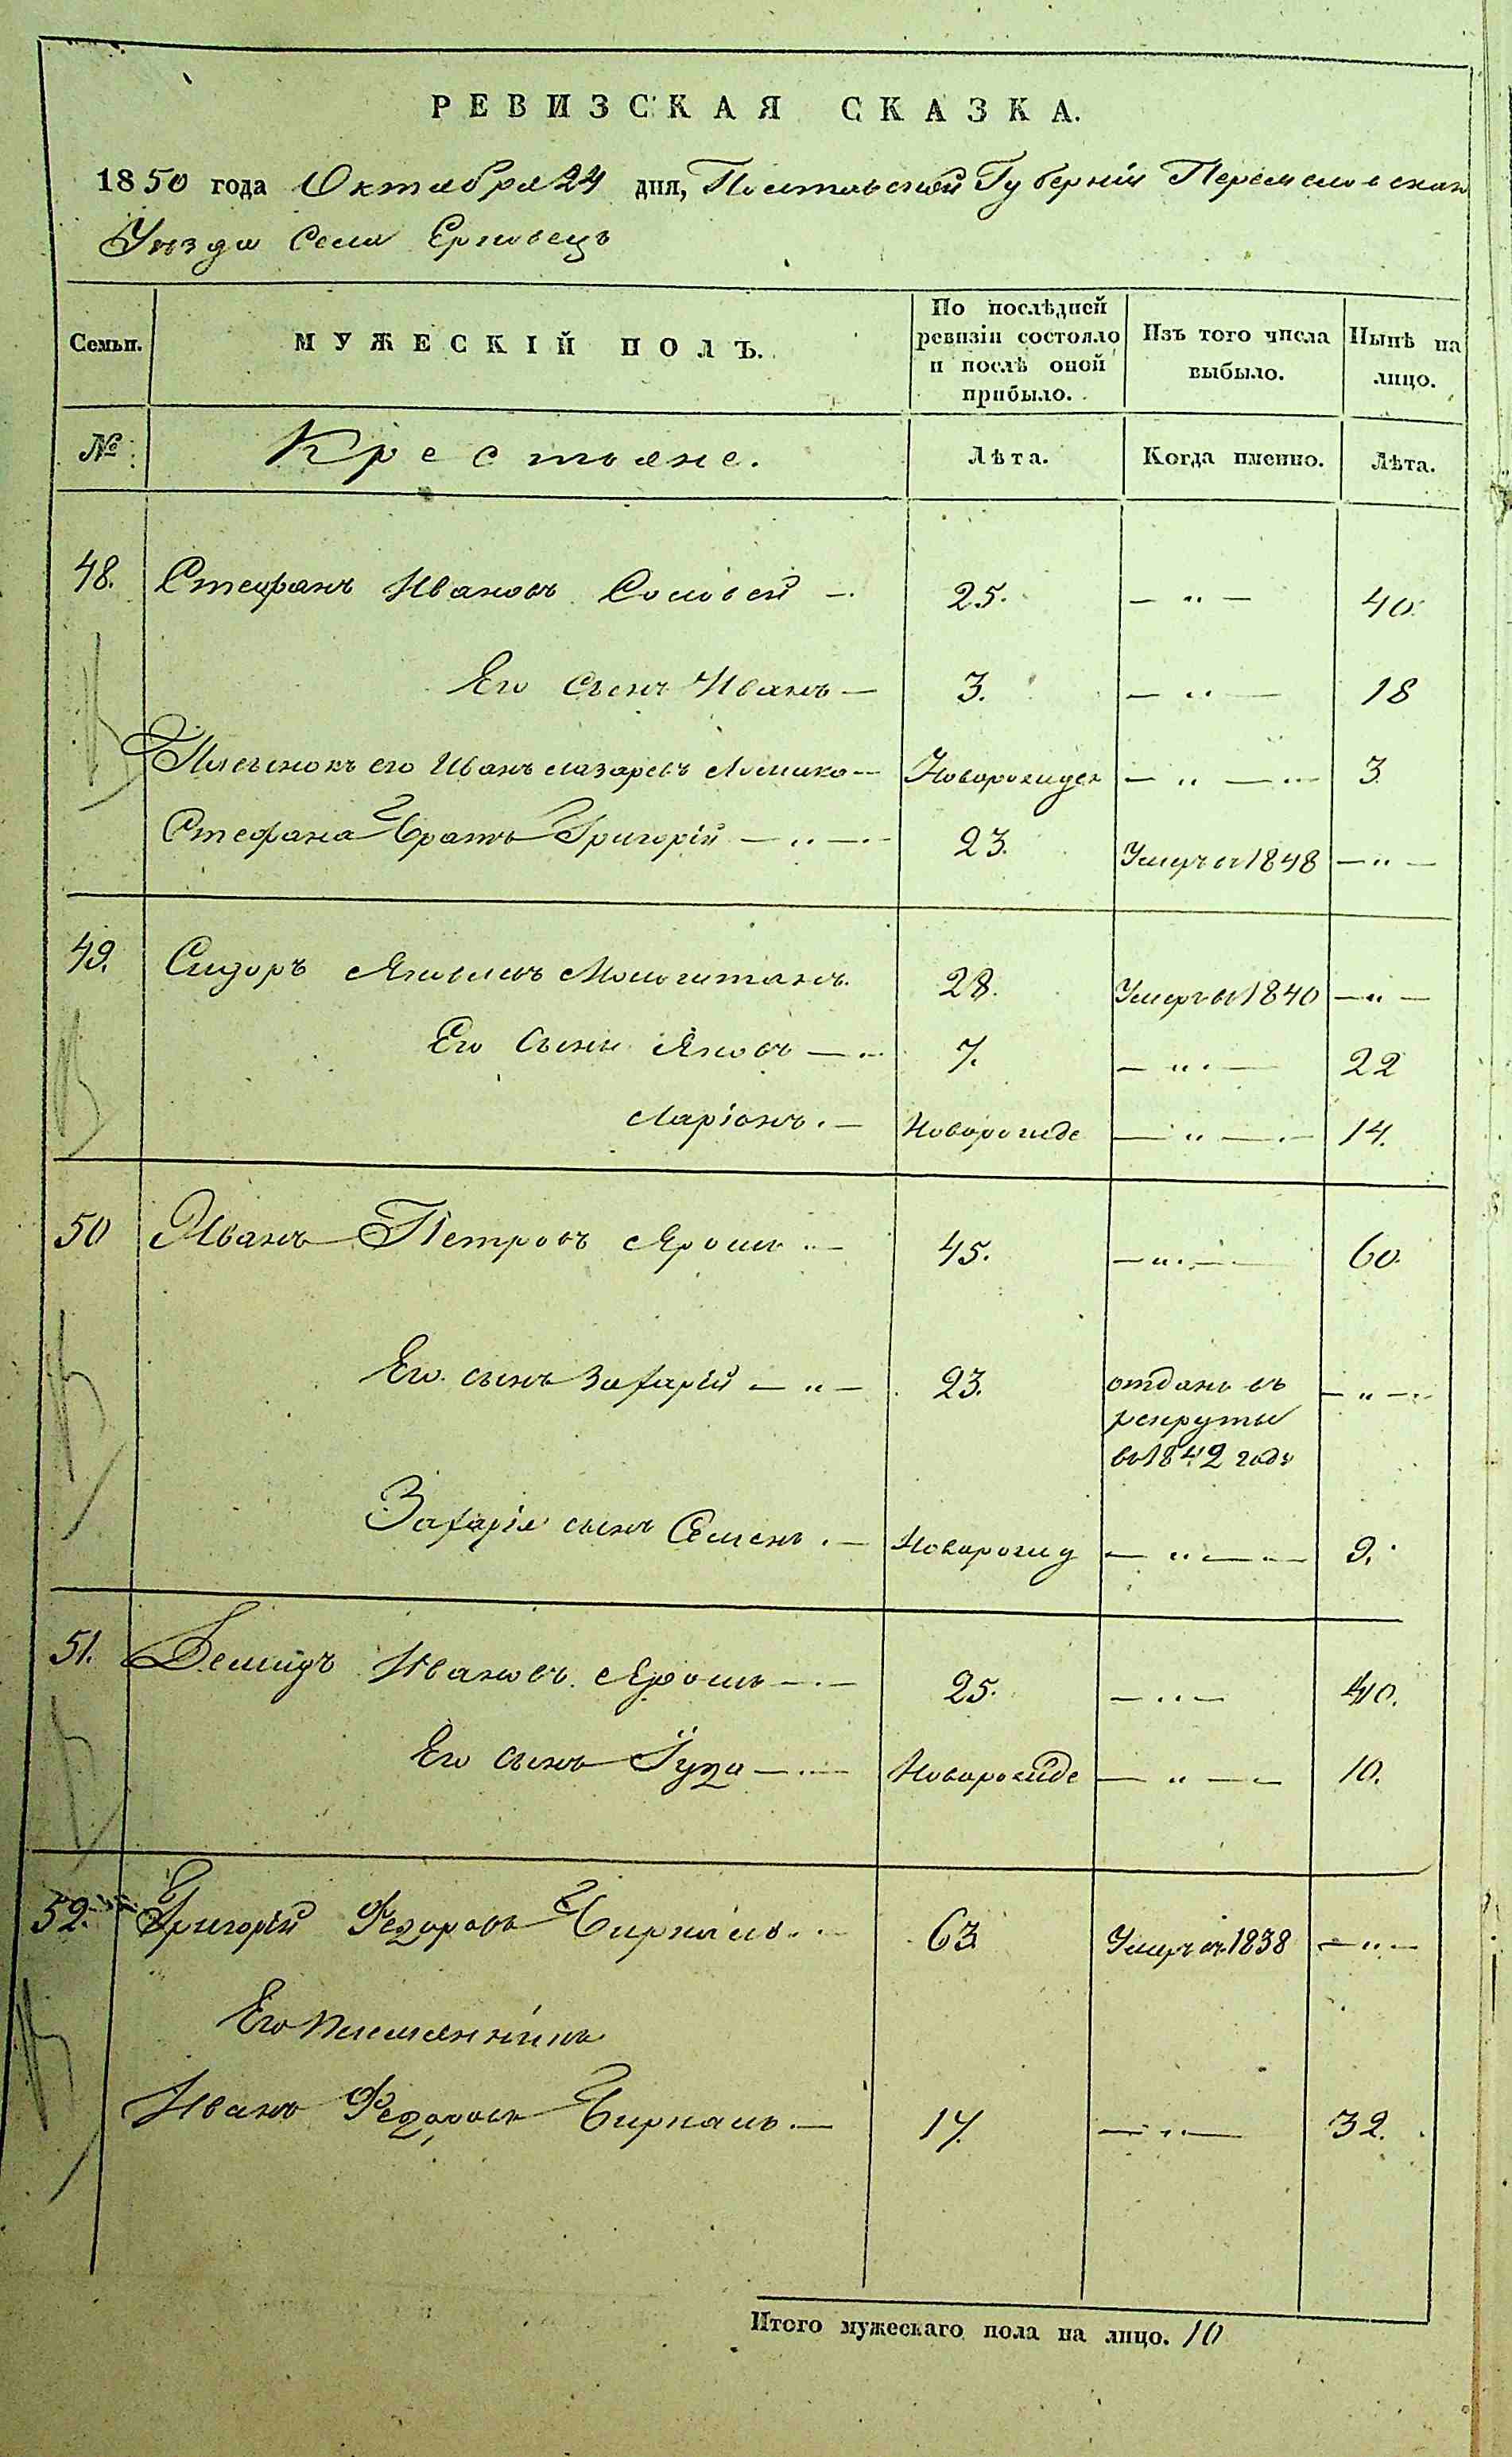 РЕВИЗСКАЯ СКАЗКА.
1850 года Октября 24 дня, Полтавской Губерніи Переяславскаго
Уѣзда Села Ерковецъ
Семьи. МУЖЕСКІЙ ПОЛЪ. По послѣдней ревизіи состояло и послѣ оной прибыло. Изъ того числа выбыло. Нынѣ на лицо.
№ Крестьяне. Лѣта. Когда именно. Лѣта.
48. Стефанъ Ивановъ Соловей — 25. — „ — 40.
Его сынъ Иванъ — 3. — „ — 18
его Иванъ Лазаревъ — Новорожден — „ — 3
Стефана братъ Григорій — „ — 23. Умеръ въ 1848 — „ —
49. Сидоръ Яковлевъ 28. Умеръ въ 1840 — „ —
Его сыны Яковъ — 7. — „ — 22
Ларіонъ. — Новорожде — „ — 14.
50 Иванъ Петровъ Ярошъ — 45. — „ — 60.
Его сынъ Захарій — „ — 23. отданъ въ — „ —
рекруты
въ 1842 годѣ
Захарія сынъ Семенъ. — Новорожд — „ — 9.
51. Демидъ Ивановъ Ярошъ — 25. — „ — 40.
Его сынъ Іуда — Новорожде — „ — 10.
52. Григорій Федоровъ 63 Умеръ въ 1838 — „ —
Его племянникъ
Иванъ Федоровъ 17. — „ — 32.
Итого мужескаго пола на лицо. 10